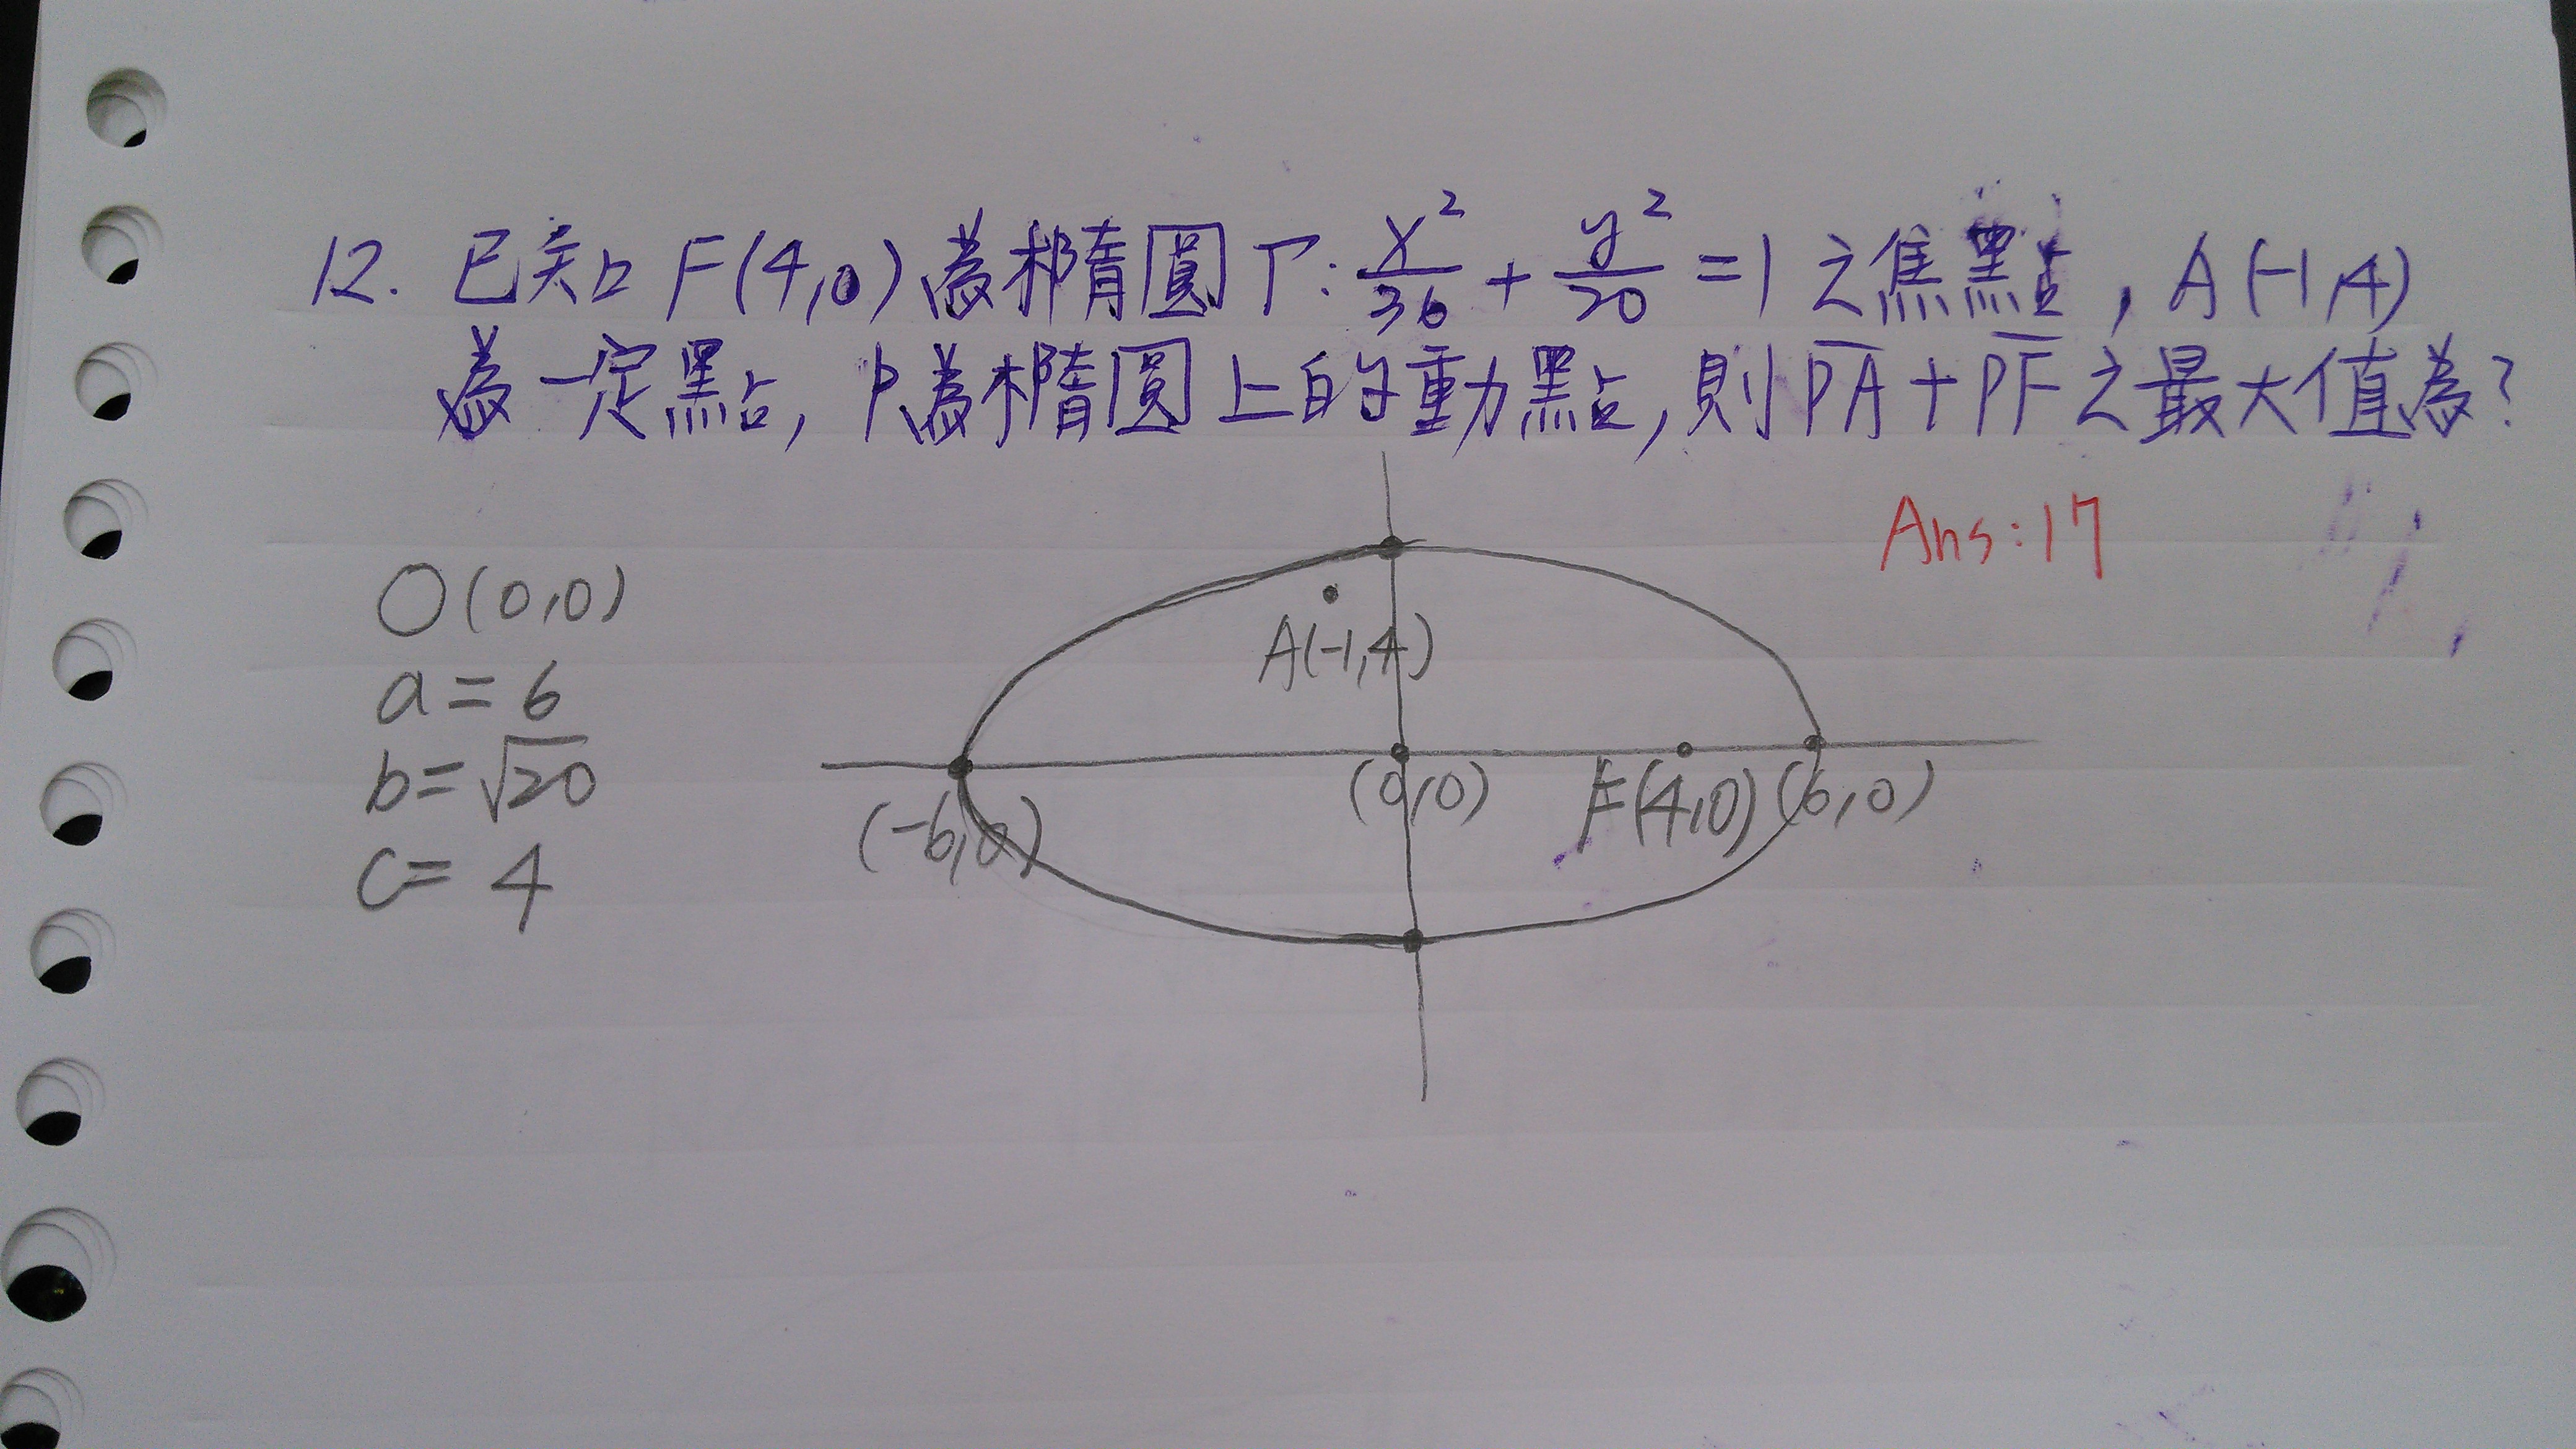 12. 已知 F(4,0)為橢圓 Γ: x²/36 + y²/20 = 1 之焦點, A(-1,4)
為一定點, P為橢圓上的動點, 則 P̅A̅ + P̅F̅ 之最大值為?
Ans: 17
O(0,0)
a = 6
b = √20
c = 4
A(-1,4)
(-6,0)
(0,0)
F(4,0)
(6,0)